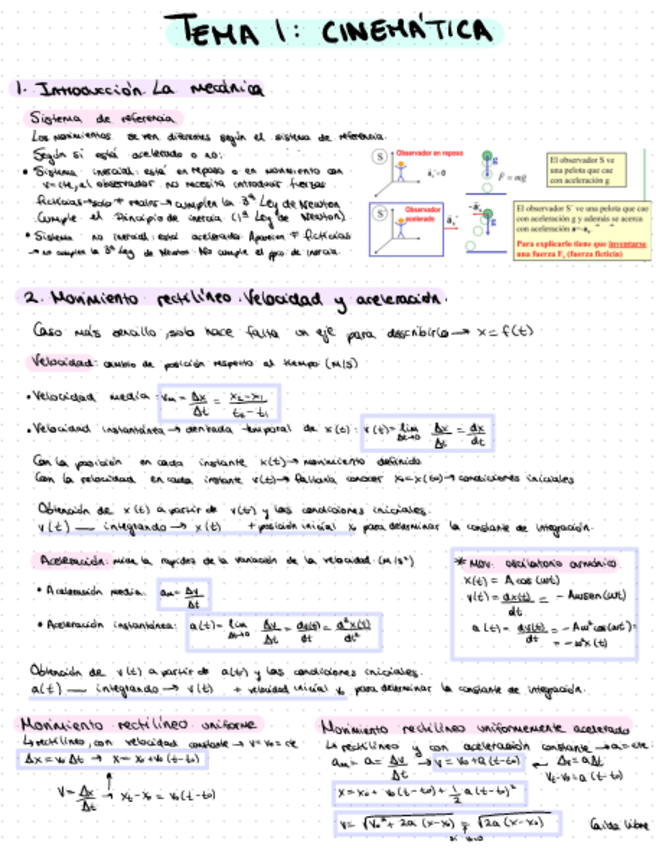 TEMA 1: CINEMÁTICA
1. Introducción. La mecánica
Sistema de referencia
Los movimientos se ven diferentes según el sistema de referencia.
Según si está acelerado o no:
• Sistema inercial: está en reposo o en movimiento con
v=cte, el observador no necesita introducir fuerzas
ficticias → solo reales → cumplen la 3ª Ley de Newton
Cumple el Principio de inercia (1ª Ley de Newton)
• Sistema no inercial: está acelerado. Aparecen F ficticias
→ no cumplen la 3ª Ley de Newton. No cumple el ppio de inercia.
S Observador en reposo
a⃗ₛ=0
g
F⃗ = mg⃗
El observador S ve
una pelota que cae
con aceleración g
S' Observador
acelerado
El observador S' ve una pelota que cae
con aceleración g y además se acerca
con aceleración
Para explicarlo tiene que inventarse
una fuerza Fᵢ (fuerza ficticia)
2. Movimiento rectilíneo. Velocidad y aceleración.
Caso más sencillo, solo hace falta un eje para describirlo → x = f(t)
Velocidad: cambio de posición respecto al tiempo (m/s)
• Velocidad media: vₘ = Δx/Δt = (x₂-x₁)/(t₂-t₁)
• Velocidad instantánea → derivada temporal de x(t): v(t) = lim Δt→0 Δx/Δt = dx/dt
Con la posición en cada instante x(t) → movimiento definido
Con la velocidad en cada instante v(t) → faltaría conocer x₀=x(t₀) → condiciones iniciales
Obtención de x(t) a partir de v(t) y las condiciones iniciales.
v(t) — integrando → x(t) + posición inicial x₀ para determinar la constante de integración.
Aceleración: mide la rapidez de la variación de la velocidad. (m/s²)
• Aceleración media: aₘ = Δv/Δt
• Aceleración instantánea: a(t) = lim Δt→0 Δv/Δt = dv(t)/dt = d²x(t)/dt²
* Mov. oscilatorio armónico
x(t) = A cos(ωt)
v(t) = dx(t)/dt = -Aωsen(ωt)
a(t) = dv(t)/dt = -Aω²cos(ωt) =
= -ω²x(t)
Obtención de v(t) a partir de a(t) y las condiciones iniciales.
a(t) — integrando → v(t) + velocidad inicial v₀ para determinar la constante de integración.
Movimiento rectilíneo uniforme
↳ rectilíneo, con velocidad constante → v=v₀=cte
Δx = v₀ Δt → x = x₀+v₀(t-t₀)
v = Δx/Δt → xₜ-x₀ = v₀(t-t₀)
Movimiento rectilíneo uniformemente acelerado
↳ rectilíneo y con aceleración constante → a=cte.
aₘ = a = Δv/Δt → v = v₀+a(t-t₀) ← Δv=aΔt
vₜ-v₀=a(t-t₀)
x = x₀+ v₀(t-t₀)+ 1/2 a(t-t₀)²
v = √(v₀²+2a(x-x₀)) = √(2a(x-x₀))
si v₀=0
Caída libre